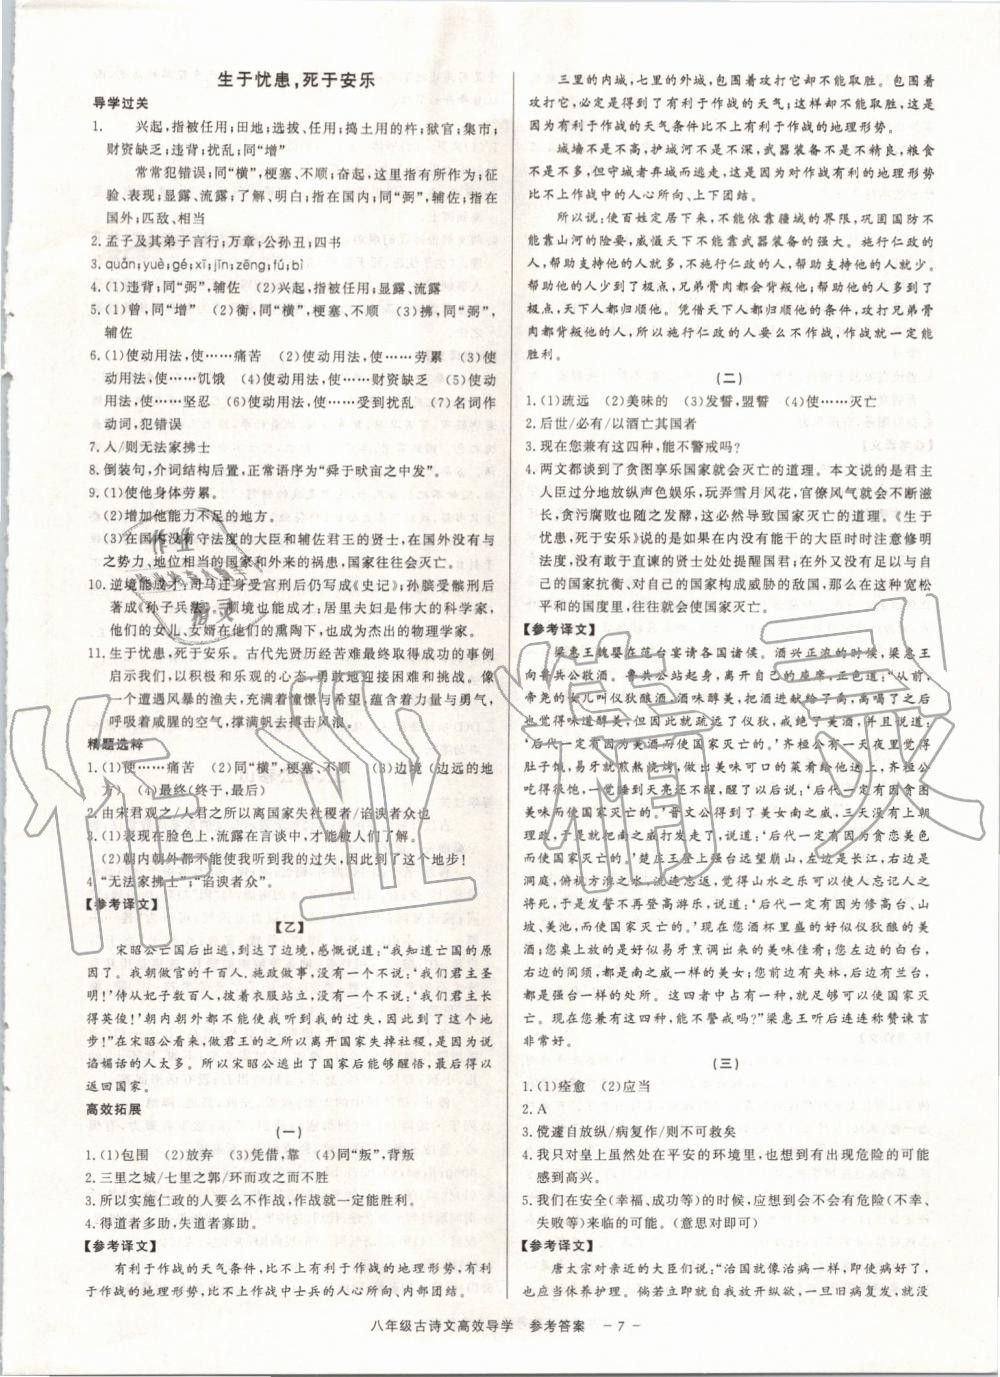 生于忧患,死于安乐
导学过关
1. 兴起,指被任用;田地;选拔、任用;捣土用的杵;狱官;集市;
财资缺乏;违背;扰乱;同“增”
常常犯错误;同“横”,梗塞、不顺;奋起,这里指有所作为;征
验、表现;显露、流露;了解、明白;指在国内;同“弼”,辅佐;指在
国外;匹敌、相当
2. 孟子及其弟子言行;万章;公孙丑;四书
3. quǎn;yuè;gé;xī;jīn;zēng;fú;bì
4. (1)违背;同“弼”,辅佐 (2)兴起,指被任用;显露、流露
5. (1)曾,同“增” (2)衡,同“横”,梗塞、不顺 (3)拂,同“弼”,
辅佐
6. (1)使动用法,使……痛苦 (2)使动用法,使……劳累 (3)使
动用法,使……饥饿 (4)使动用法,使……财资缺乏 (5)使动
用法,使……坚忍 (6)使动用法,使……受到扰乱 (7)名词作
动词,犯错误
7. 人/则无法家拂士
8. 倒装句,介词结构后置,正常语序为“舜于畎亩之中发”。
9. (1)使他身体劳累。
(2)增加他能力不足的地方。
(3)在国内没有守法度的大臣和辅佐君王的贤士,在国外没有与
之势力、地位相当的国家和外来的祸患,国家往往会灭亡。
10. 逆境能成才:司马迁身受宫刑后仍写成《史记》;孙膑受髌刑后
著成《孙子兵法》。顺境也能成才:居里夫妇是伟大的科学家,
他们的女儿、女婿在他们的熏陶下,也成为杰出的物理学家。
11. 生于忧患,死于安乐。古代先贤历经苦难最终取得成功的事例
启示我们,以积极和乐观的心态,勇敢地迎接困难和挑战。像
一个遭遇风暴的渔夫,充满着憧憬与希望,蕴含着力量与勇气,
呼吸着咸腥的空气,撑满帆去搏击风浪。
精题选粹
1. (1)使……痛苦 (2)同“横”,梗塞、不顺 (3)边境(边远的地
方) (4)最终(终于,最后)
2. 由宋君观之/人君之所以离国家失社稷者/谄谀者众也
3. (1)表现在脸色上,流露在言谈中,才能被人们了解。
(2)朝内朝外都不能使我听到我的过失,因此到了这个地步!
4. “无法家拂士”;“谄谀者众”。
【参考译文】
【乙】
宋昭公亡国后出逃,到达了边境,感慨说道:“我知道亡国的原
因了。我朝做官的千百人,施政做事,没有一个不说:‘我们君主圣
明!’侍从妃子数百人,披着衣服站立,没有一个不说:‘我们君主长
得英俊!’朝内朝外都不能使我听到我的过失,因此到了这个地
步!”在宋昭公看来,做君王的之所以离开国家失掉社稷,是因为说
谄媚话的人太多。所以宋昭公逃出了国家后能够醒悟,最后得以
返回国家。
高效拓展
(一)
1. (1)包围 (2)放弃 (3)凭借,靠 (4)同“叛”,背叛
2. 三里之城/七里之郭/环而攻之而不胜
3. 所以实施仁政的人要么不作战,作战就一定能胜利。
4. 得道者多助,失道者寡助。
【参考译文】
有利于作战的天气条件,比不上有利于作战的地理形势,有利
于作战的地理形势,比不上作战中士兵的人心所向、内部团结。
三里的内城,七里的外城,包围着攻打它却不能取胜。包围着
攻打它,必定是得到了有利于作战的天气;这样却不能取胜,这是
因为有利于作战的天气条件比不上有利于作战的地理形势。
城墙不是不高,护城河不是不深,武器装备不是不精良,粮食
不是不多,但守城者弃城而逃走,这是因为有利于作战的地理形势
比不上作战中的人心所向、上下团结。
所以说:使百姓定居下来,不能依靠疆域的界限,巩固国防不
能靠山河的险要,威慑天下不能靠武器装备的强大。施行仁政的
人,帮助支持他的人就多,不施行仁政的人,帮助支持他的人就少。
帮助他的人少到了极点,兄弟骨肉都会背叛他;帮助他的人多到了
极点,天下人都归顺他。凭借天下人都归顺他的条件,攻打兄弟骨
肉都背叛他的人,所以施行仁政的人要么不作战,作战就一定能
胜利。
(二)
1. (1)疏远 (2)美味的 (3)发誓,盟誓 (4)使……灭亡
2. 后世/必有/以酒亡其国者
3. 现在您兼有这四种,能不警戒吗?
4. 两文都谈到了贪图享乐国家就会灭亡的道理。本文说的是君主
人臣过分地放纵声色娱乐,玩弄雪月风花,官僚风气就会不断滋
长,贪污腐败也会随之发酵,这必然导致国家灭亡的道理。《生于
忧患,死于安乐》说的是如果在内没有能干的大臣时时注意修明
法度,没有敢于直谏的贤士处处提醒国君;在外又没有足以与自
己的国家抗衡、对自己的国家构成威胁的敌国,那么在这种宽松
平和的国度里,往往就会使国家灭亡。
【参考译文】
梁惠王魏婴在范台宴请各国诸侯。酒兴正浓的时候,梁惠王
向鲁共公敬酒。鲁共公站起身,离开自己的座席,正色道:“从前,
帝尧的女儿叫仪狄酿酒,酒味醇美,把酒进献给了禹,禹喝了之后
也觉得味道醇美,但因此就疏远了仪狄,戒绝了美酒,并且说道:
‘后代一定有因为美酒而使国家灭亡的。’齐桓公有一天夜里觉得
肚子饿,易牙就煎熬烧烤,做出美味可口的菜肴给他送上,齐桓公
吃得很饱,一觉睡到天亮还不醒,醒了以后说道:‘后代一定有因贪图
美味而使国家灭亡的。’晋文公得到了美女南之威,三天没有上朝
理政,于是就把南之威打发走了,说道:‘后代一定有因为贪恋美色
而使国家灭亡的。’楚庄王登上强台远望崩山,左边是长江,右边是
洞庭,俯视方淮之水,流连忘返,觉得山水之乐可以使人忘记人之
将死,于是发誓不再登高游乐,说道:‘后代一定有因为修高台、山
坡、美池,而使国家灭亡的。’现在您酒杯里盛的好似仪狄酿的美
酒;您桌上放的是好似易牙烹调出来的美味佳肴;您左边的白台,
右边的闾须,都是南之威一样的美女;您前边有夹林,后边有兰台,
都是强台一样的处所。这四者中占有一种,就足以使国家灭
亡。现在您兼有这四种,能不警戒吗?”梁惠王听后连连称赞谏言
非常好。
(三)
1. (1)痊愈 (2)应当
2. A
3. 傥遽自放纵/病复作/则不可救矣
4. 我只对皇上虽然处在平安的环境里,也想到有出现危险的可能
感到高兴。
5. 我们在安全(幸福、成功等)的时候,应想到会不会有危险(不幸、
失败等)来临的可能。(意思对即可)
【参考译文】
唐太宗对亲近的大臣们说:“治国就像治病一样,即使病好了,
也应当休养护理。倘若立即就自我放开纵欲,一旦旧病复发,就没
八年级古诗文高效导学 参考答案 －7－